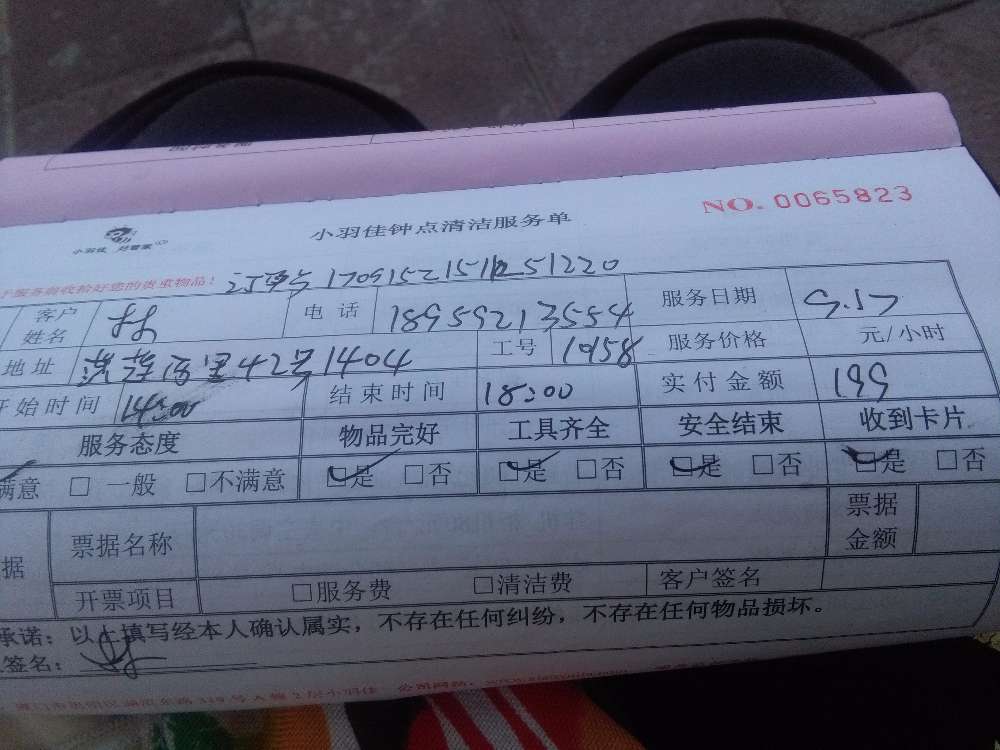 小羽佳 好管家
小羽佳钟点清洁服务单
NO. 0065823
服务前收拾好您的贵重物品!
客户姓名 林 电话 18959213554 服务日期 9.17
地址 42号1404 工号 1058 服务价格 元/小时
开始时间 14:00 结束时间 18:00 实付金额 199
服务态度 物品完好 工具齐全 安全结束 收到卡片
满意 □ 一般 □不满意 □是 □否 □是 □否 □是 □否 □是 □否
据 票据名称 票据金额
开票项目 □服务费 □清洁费 客户签名
承诺：以上填写经本人确认属实，不存在任何纠纷，不存在任何物品损坏。
签名： 林